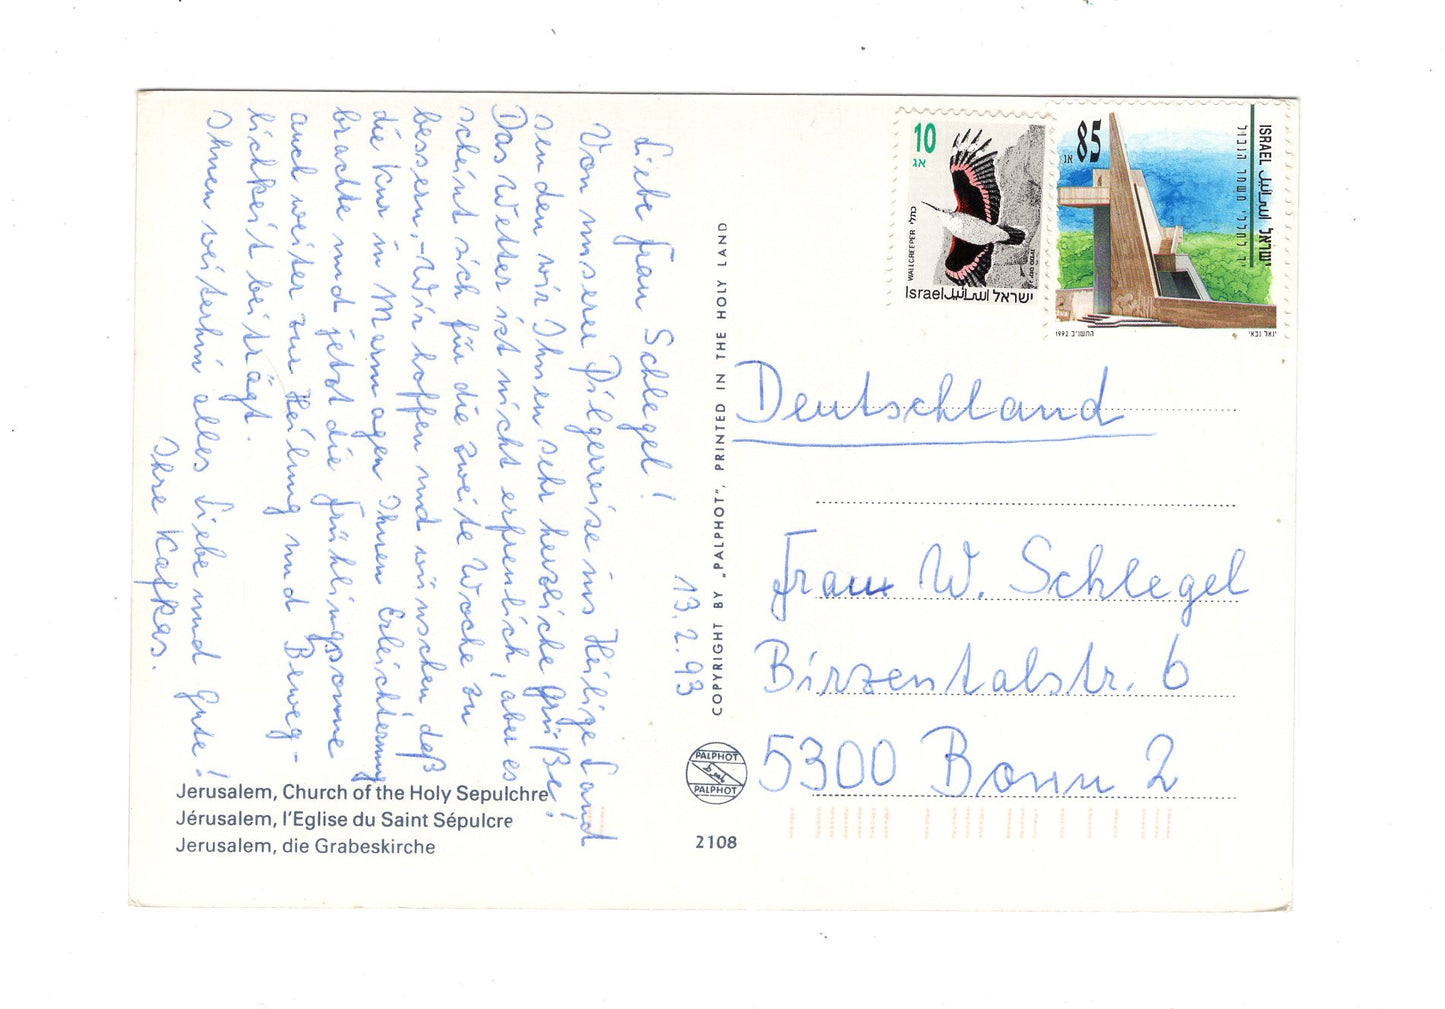 13.2.93
Liebe Frau Schlegel!
Von unserer Pilgerreise ins Heilige Land
senden wir Ihnen sehr herzliche Grüße!
Das Wetter ist nicht erfreulich, aber es
scheint sich für die zweite Woche zu
bessern,-Wir hoffen und wünschen, daß
die Kur in Marmagen Ihnen Erleichterung
brachte und jetzt die Frühlingssonne
auch weiter zur Heilung und Beweg-
lichkeit beiträgt.
Ihnen weiterhin alles Liebe und Gute!
Ihre Kafkas.
Jerusalem, Church of the Holy Sepulchre
Jérusalem, l'Eglise du Saint Sépulcre
Jerusalem, die Grabeskirche
COPYRIGHT BY „PALPHOT", PRINTED IN THE HOLY LAND
PALPHOT
PALPHOT
2108
10
אג
WALLCREEPER כותלי
Israel اسرائيل ישראל
85
אג
ISRAEL اسرائيل ישראל
יד לחללי משמר הגבול
1992 התשנ"ב
יגאל גבאי
Deutschland
Frau W. Schlegel
Birzentalstr. 6
5300 Bonn 2